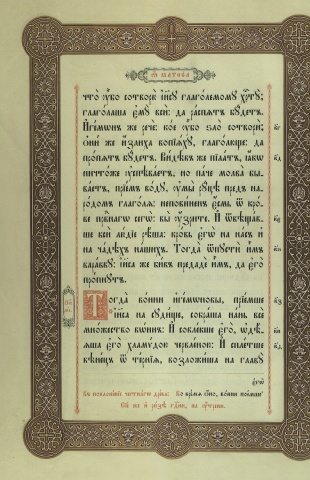 Ѿ матѳеа
что̀ ᲂу҆̀бо сотворю̀ і҆и҃сꙋ глаго́лемомꙋ хр҇тꙋ̀;
глаго́лаша є҆мꙋ̀ всѝ: да ра́спѧтъ бꙋ́детъ.
И҆ге́мѡнъ же речѐ: ко́е ᲂу҆́бо ѕло̀ сотворѝ;
ѻ҆ни́ же и҆́злиха вопїѧ́хꙋ, глаго́люще: да
про́пѧтъ бꙋ́детъ. Ви́дѣвъ же пїла́тъ, ꙗ҆́кѡ
ничто́же ᲂу҆спѣва́етъ, но па́че молва̀ бы-
ва́етъ, прїе́мъ во́дꙋ, ᲂу҆мы̀ рꙋ́цѣ пред̾ на-
ро́домъ глаго́лѧ: непови́ненъ є҆́смь ѿ кро́-
ве првⷣнагѡ сегѡ̀: вы̀ ᲂу҆́зрите. И҆ ѿвѣща́в-
ше всѝ лю́дїе рѣ́ша: кро́вь є҆гѡ̀ на на́съ и҆
на ча́дѣхъ на́шихъ. Тогда̀ ѿпꙋстѝ и҆̀мъ
вара́ввꙋ: і҆и҃са же би́въ предадѐ и҆̀мъ, да є҆го̀
про́пнꙋтъ.
Тогда̀ во́ини и҆ге́мѡнѡвы, прїе́мше
і҆и҃са на сꙋди́ще, собра́ша на́нь всѐ
мно́жество во́инъ: И҆ совле́кше є҆го̀, ѡ҆дѣ́-
ѧша є҆го̀ хламѵ́дою червле́ною: И҆ спле́тше
вѣне́цъ ѿ те́рнїѧ, возложи́ша на главꙋ̀
є҆гѡ̀